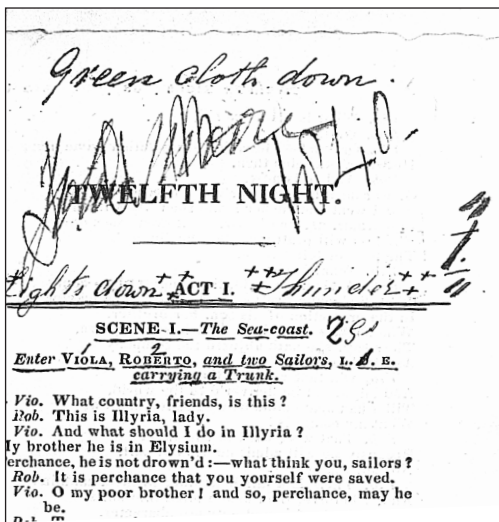 Green cloth down.
1840.
TWELFTH NIGHT.
Lights down ACT I. Thunder
SCENE I.—The Sea-coast.
Enter VIOLA, ROBERTO, and two Sailors, L. E.
carrying a Trunk.
Vio. What country, friends, is this?
Rob. This is Illyria, lady.
Vio. And what should I do in Illyria?
My brother he is in Elysium.
Perchance, he is not drown'd:—what think you, sailors?
Rob. It is perchance that you yourself were saved.
Vio. O my poor brother! and so, perchance, may he
be.